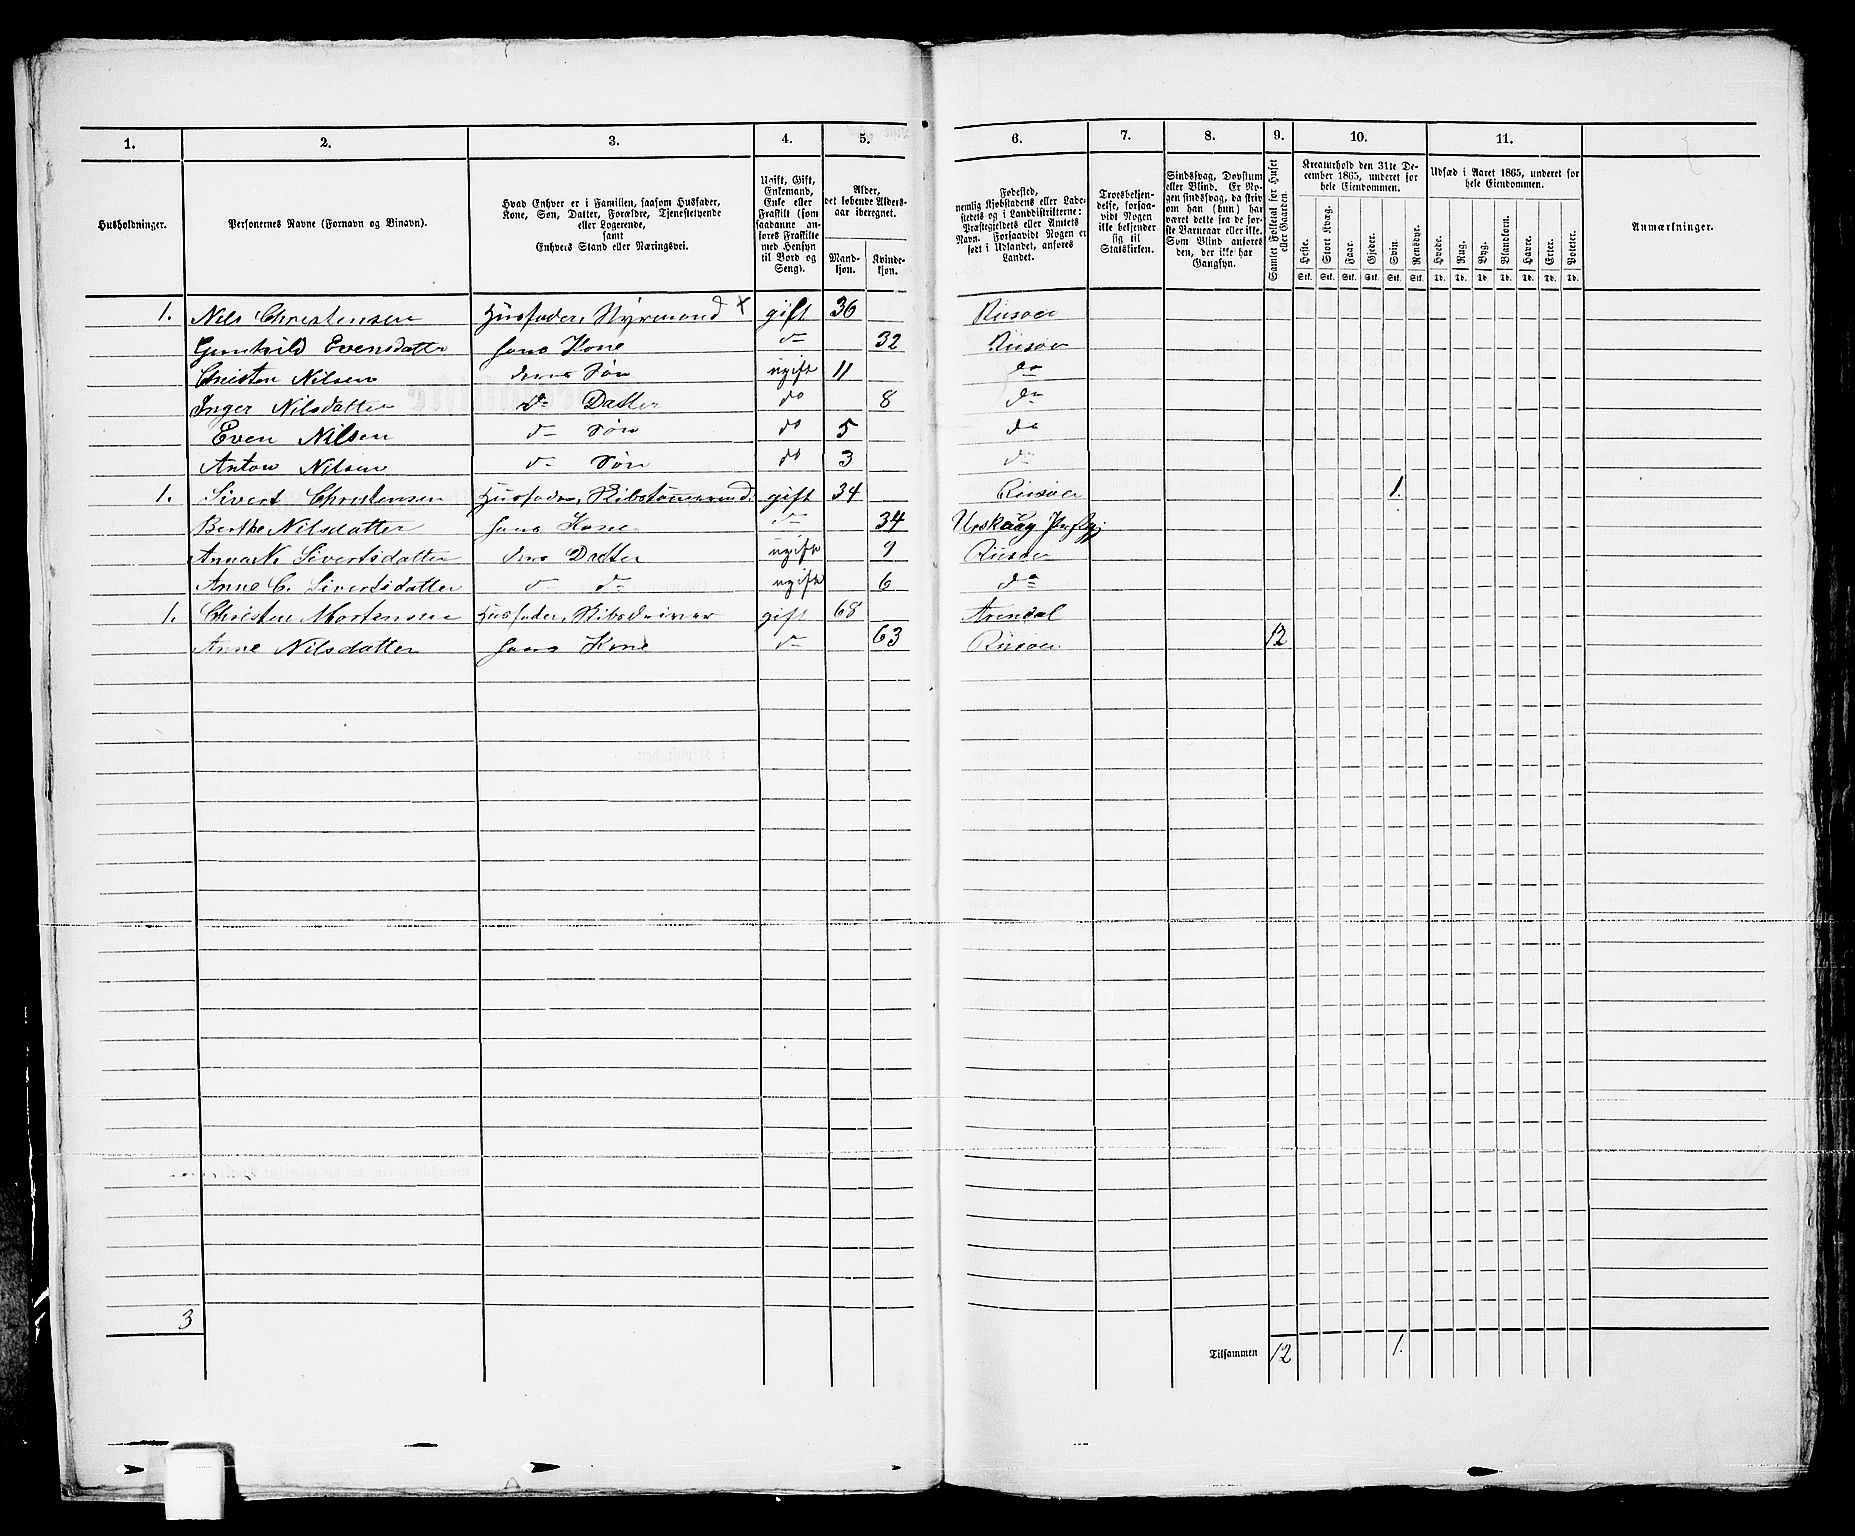 1. 2. 3. 4. 5. 6. 7. 8. 9. 10. 11.
Husholdninger.
Personernes Navne (Fornavn og Binavn).
Hvad Enhver er i Familien, saasom Husfader,
Kone, Søn, Datter, Forældre, Tjenestetyende
eller Logerende,
samt
Enhvers Stand eller Næringsvei.
Ugift, Gift,
Enkemand,
Enke eller
Fraskilt (som
saadanne an-
føres Fraskilte
med Hensyn
til Bord og
Seng).
Alder,
det løbende Alders-
aar iberegnet.
Mand-
kjøn.
Kvinde-
kjøn.
Fødested,
nemlig Kjøbstadens eller Lade-
stedets og i Landdistrikterne:
Præstegjeldets eller Annexets
Navn. Forsaavidt Nogen er
født i Udlandet, anføres
Landet.
Troesbekjen-
delse, forsaa-
vidt Nogen
ikke bekjender
sig til
Statskirken.
Sindssvag, Døvstum
eller Blind. Er No-
gen sindssvag, da skriv
om han (hun) har
været dette fra de før-
ste Barneaar eller ikke.
Som Blind anføres
den, der ikke har
Gangsyn.
Samlet Folketal for Huset
eller Gaarden.
Kreaturhold den 31te De-
cember 1865, underet for
hele Eiendommen.
Heste. Stort Kvæg. Faar. Gjeder. Svin. Rensdyr.
Stk. Stk. Stk. Stk. Stk. Stk.
Udsæd i Aaret 1865, underet for
hele Eiendommen.
Hvede. Rug. Byg. Blandkorn. Havre. Erter. Poteter.
Td. Td. Td. Td. Td. Td. Td.
Anmærkninger.
1. Nils Christensen Husfader, Styrmand gift 36 Riisøer
Gunhild Evensdatter hans Kone do 32 Riisøer
Christen Nilsen deres Søn ugift 11 do
Inger Nilsdatter do Datter do 8 do
Even Nilsen do Søn do 5 do
Anton Nilsen do Søn do 3 do
1. Sivert Christensen Husfader, Skibstømmermd. gift 34 Riisøer 1.
Berthe Nilsdatter hans Kone do 34 Urskaug Præstgj.
Anna N. Sivertsdatter deres Datter ugift 9 Riisøer
Anne C. Sivertsdatter do do ugift 6 do
1. Christen Mortensen Husfader, gift 68 Arendal
Anne Nilsdatter hans Kone do 63 Riisøer 12
3
Tilsammen 12 1.